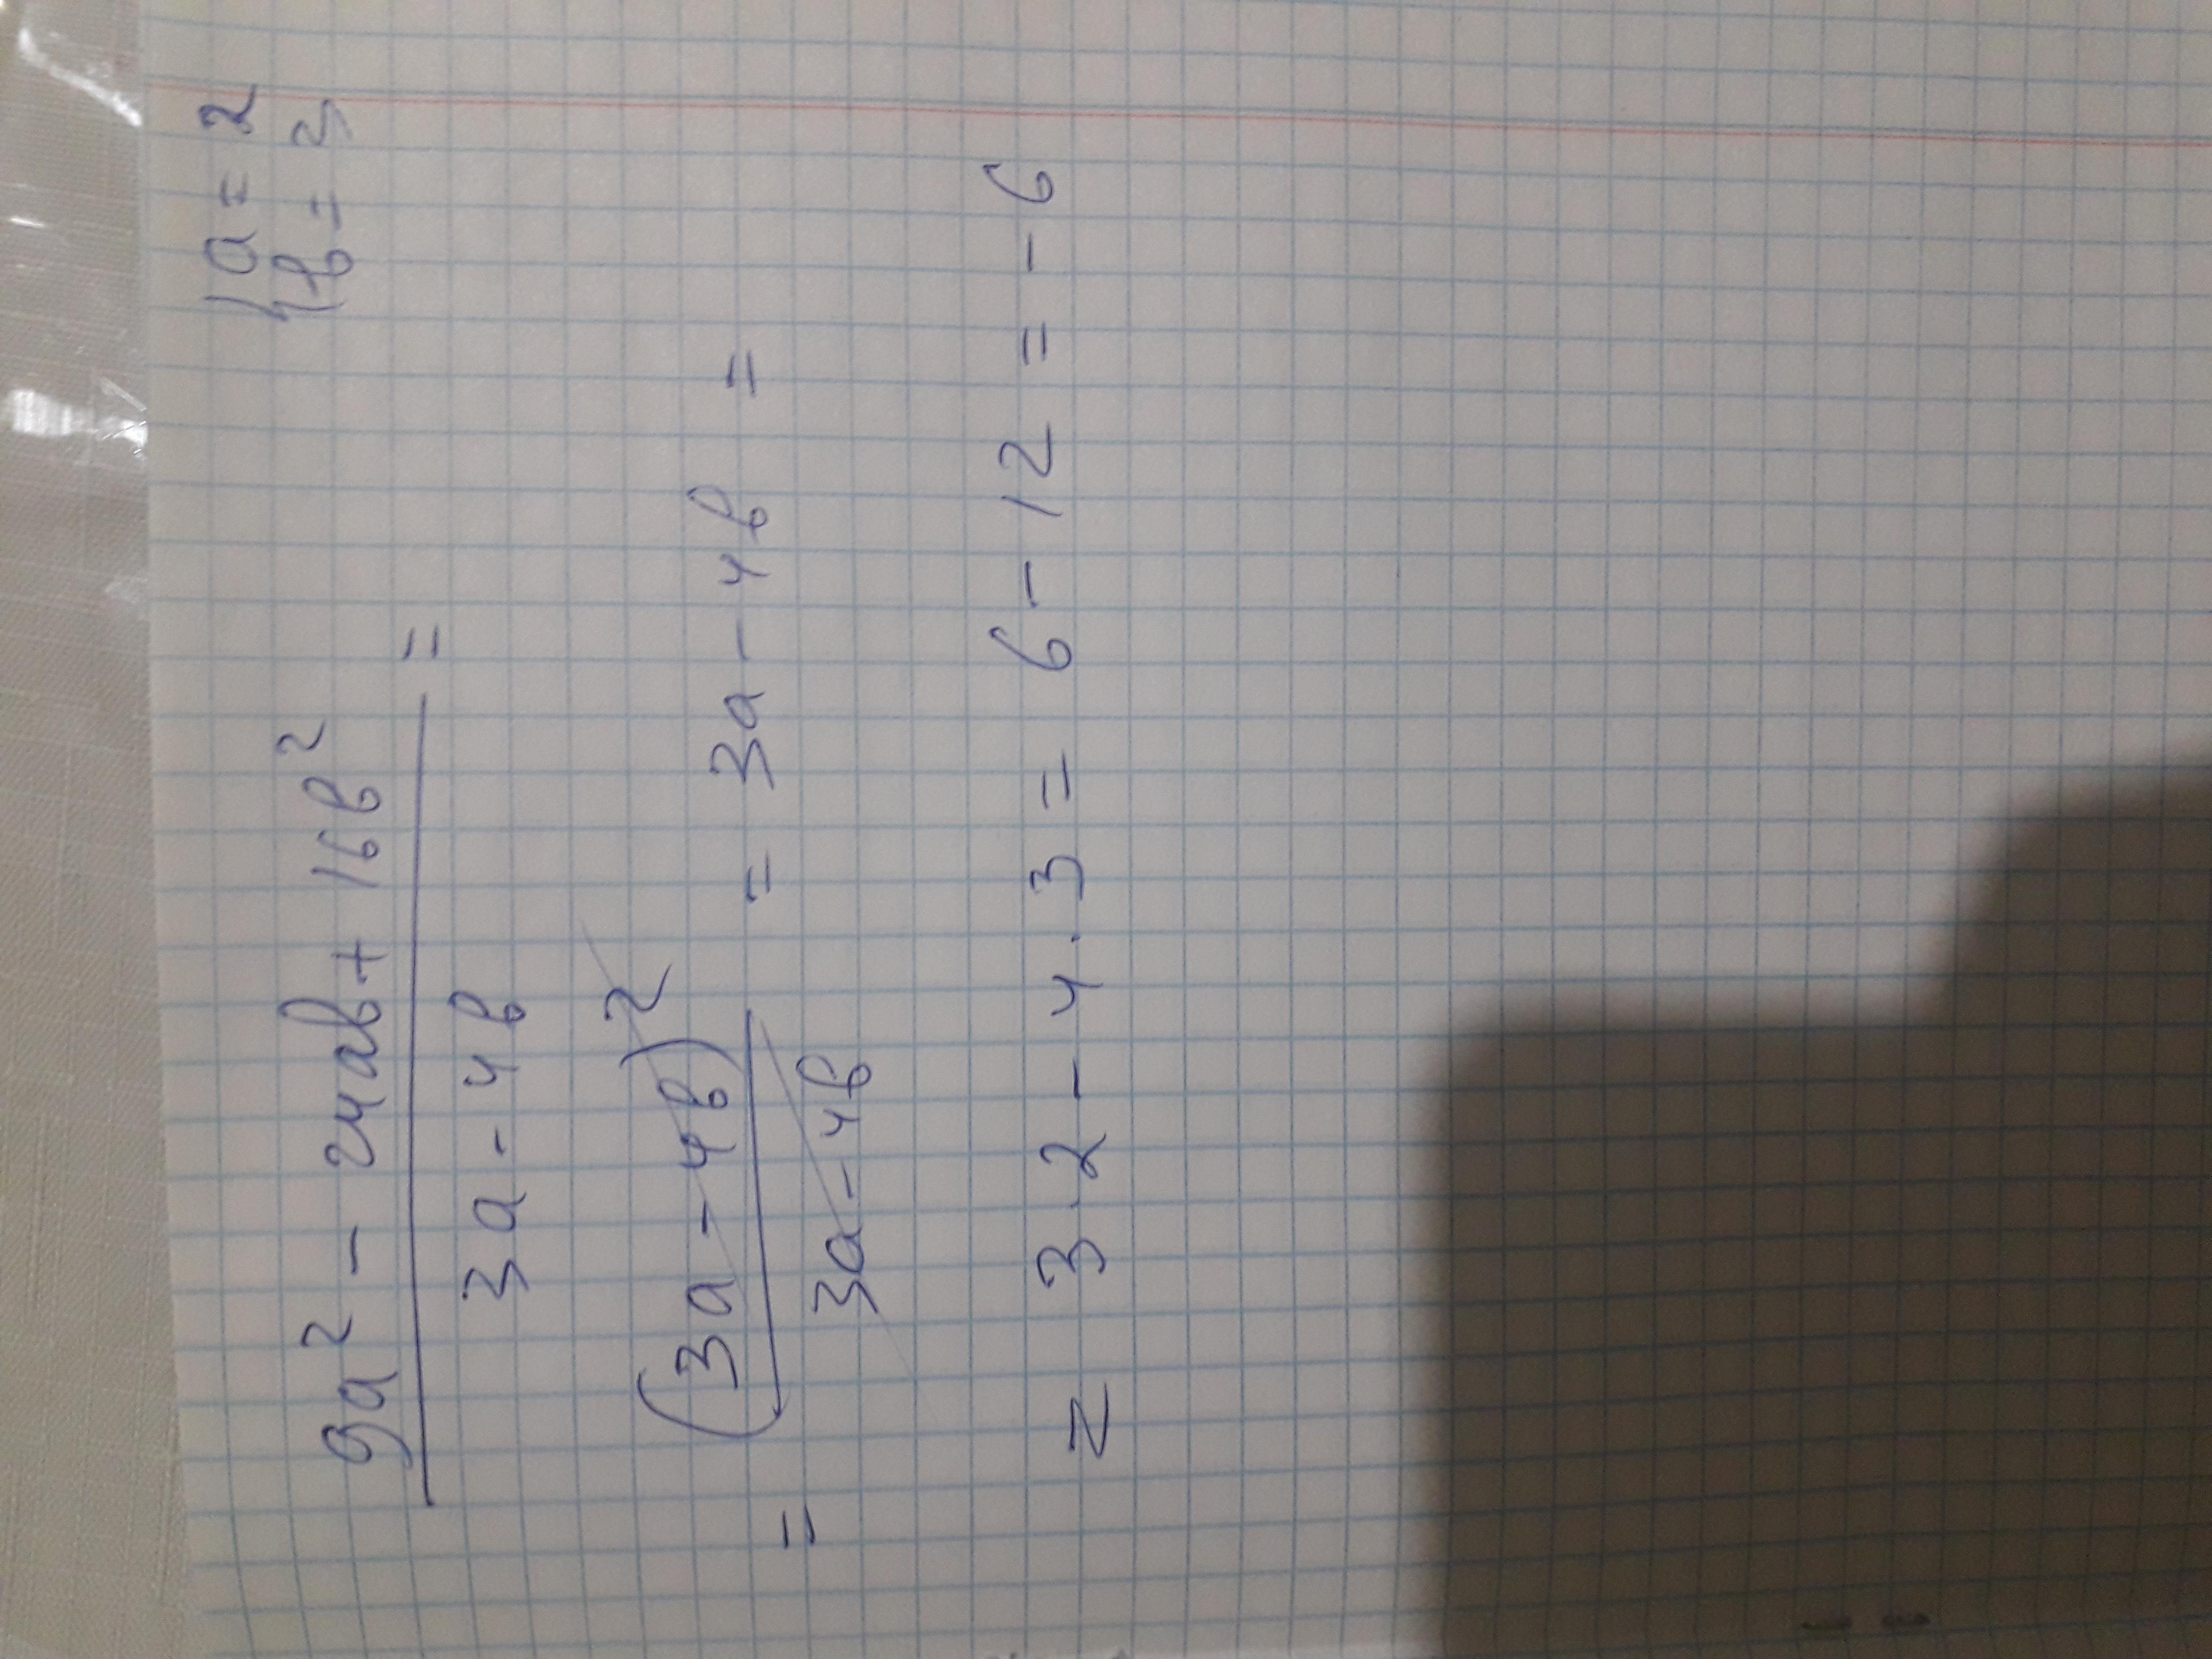 9a² - 24ab + 16b² / 3a - 4b = { a = 2
{ b = 3
= (3a - 4b)² / 3a - 4b = 3a - 4b =
= 3·2 - 4·3 = 6 - 12 = -6